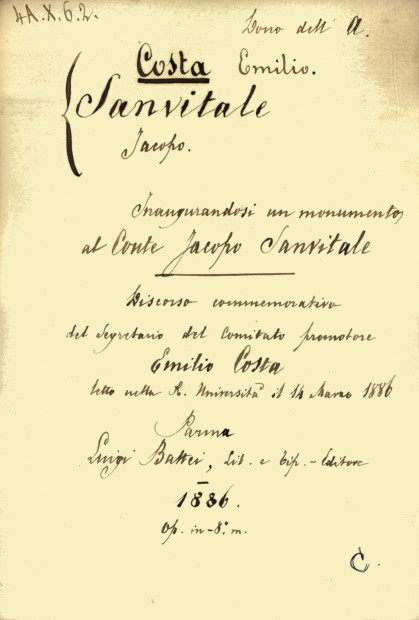 4A.X.6.2.
Dono dell' A.
Costa Emilio.
Sanvitale
Jacopo.
Inaugurandosi un monumento
al Conte Jacopo Sanvitale
Discorso commemorativo
del Segretario del Comitato promotore
Emilio Costa
letto nella R. Università il 14 Marzo 1886
Parma
Luigi Battei, Lib. e Tip.-Editore
1886.
Op. in-8º. m.
C.